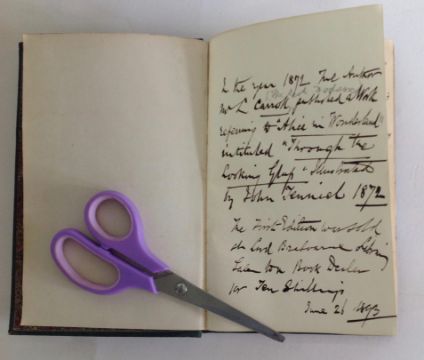 In the year 1872 The Author
Mr L Carroll, published a Work
refering to "Alice in Wonderland"
intituled "Through the
Looking Glass" Illustrated
by John Tenniel 1872
The First Edition was sold
at Lord
Book Dealer
for Ten Shillings
June 26 1893